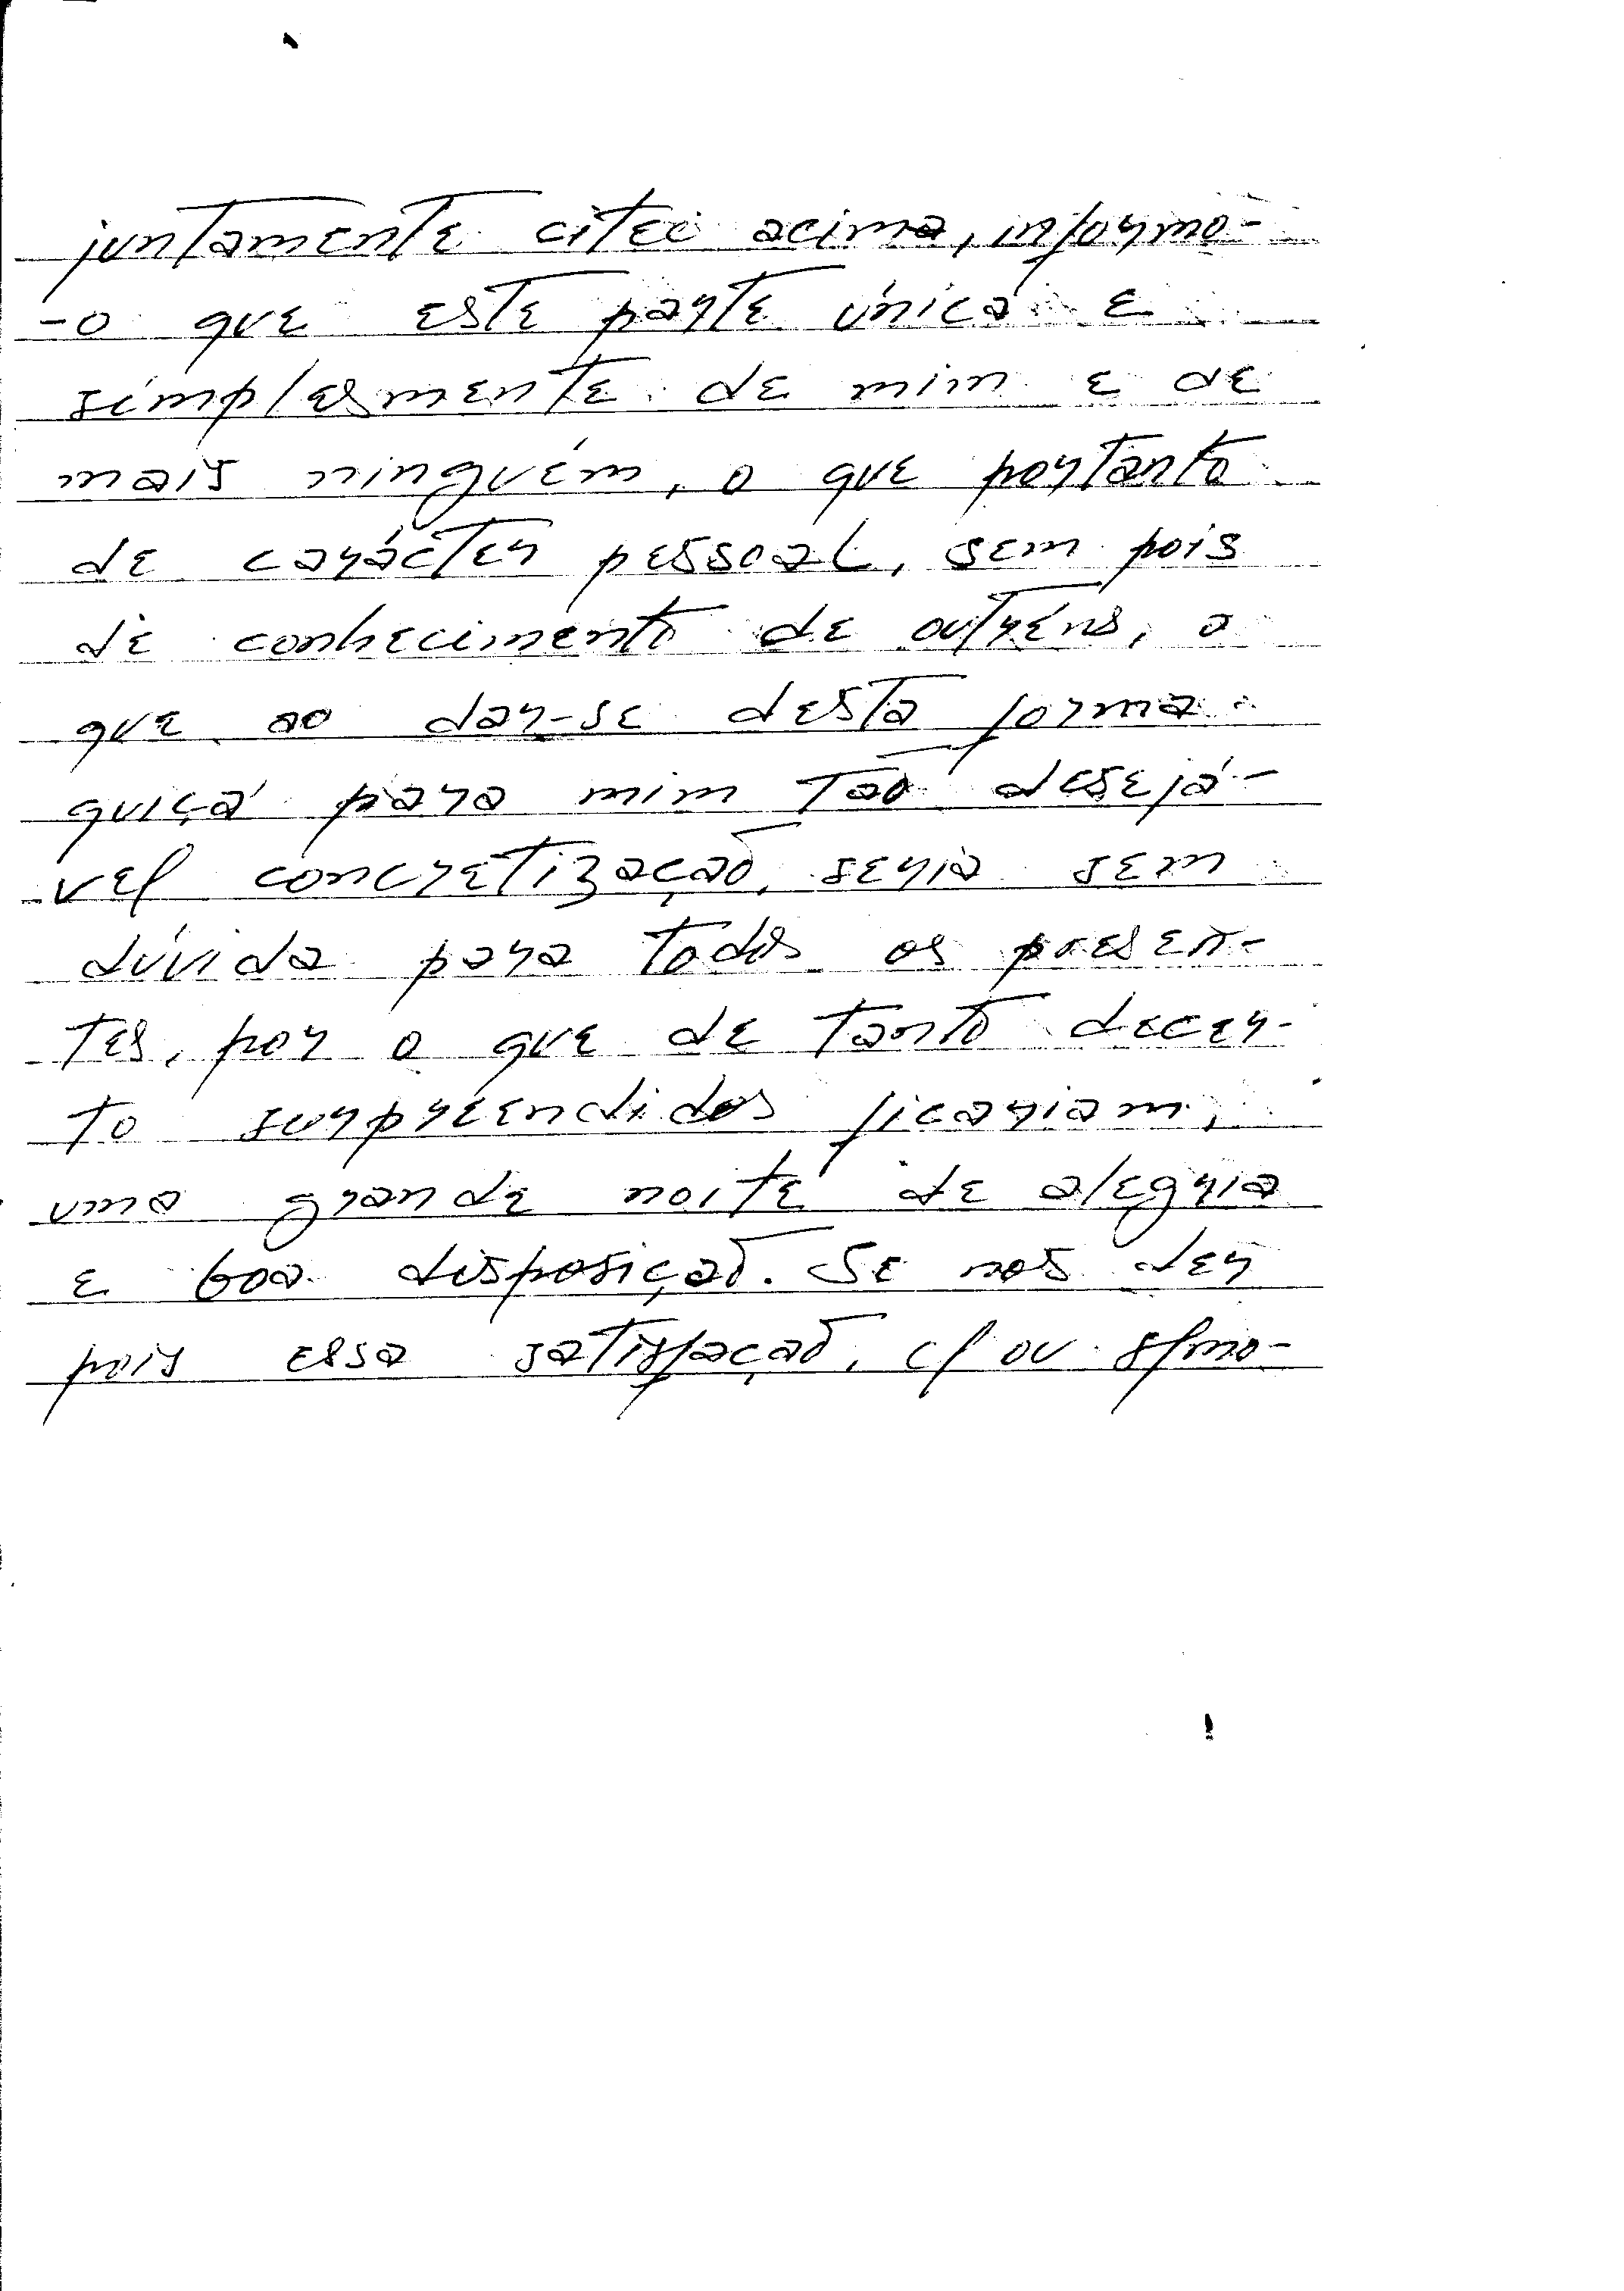 juntamente citei acima, informo-
-o que este parte única e
simplesmente de mim e de
mais ninguém, o que portanto
de carácter pessoal, sem pois
de conhecimento de outréns, o
que ao dar-se desta forma
quiçá para mim tão desejá-
vel concretização, seria sem
dúvida para todos os presen-
tes, por o que de tanto decer-
to surpreendidos ficariam,
uma grande noite de alegria
e boa disposição. Se nos der
pois essa satisfação, c/ ou s/ mo-